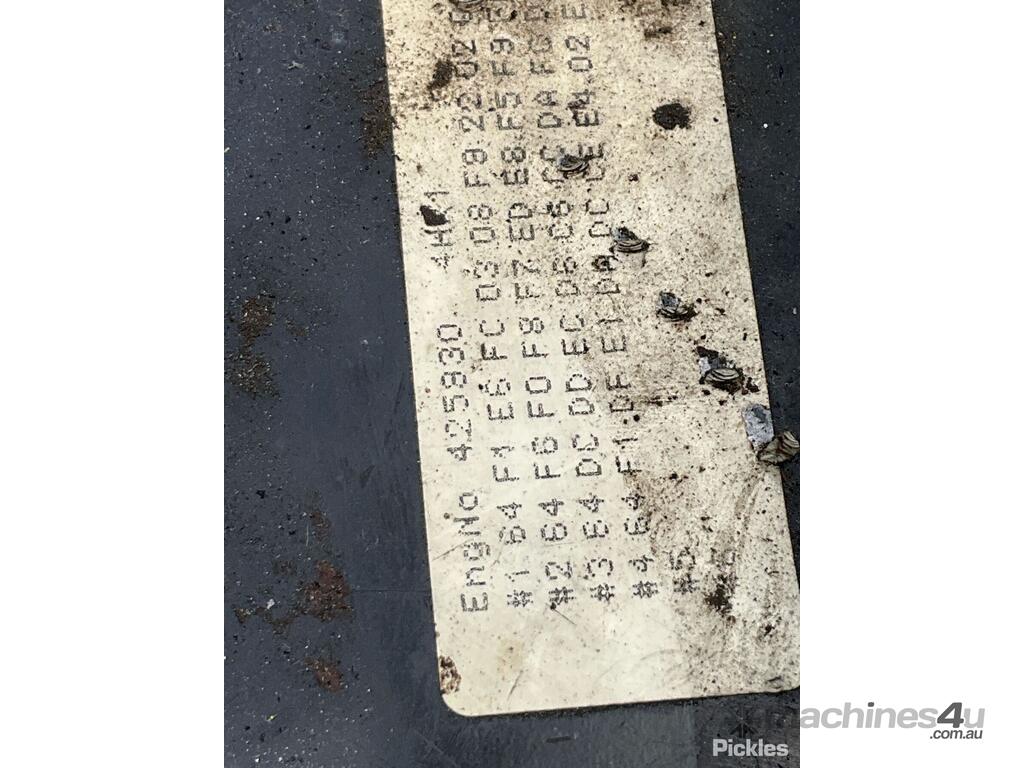 EngNo 425830 4HK1
#1 64 F1 E6 FC 03 08 F9 22 02
#2 64 F6 F0 F8 F7 ED E8 F5 F9
#3 64 DC DD EC D6 C6 DA FG
#4 64 F1 DF E1 DA DC CE E4 02 E
#5
machines4u
.com.au
Pickles